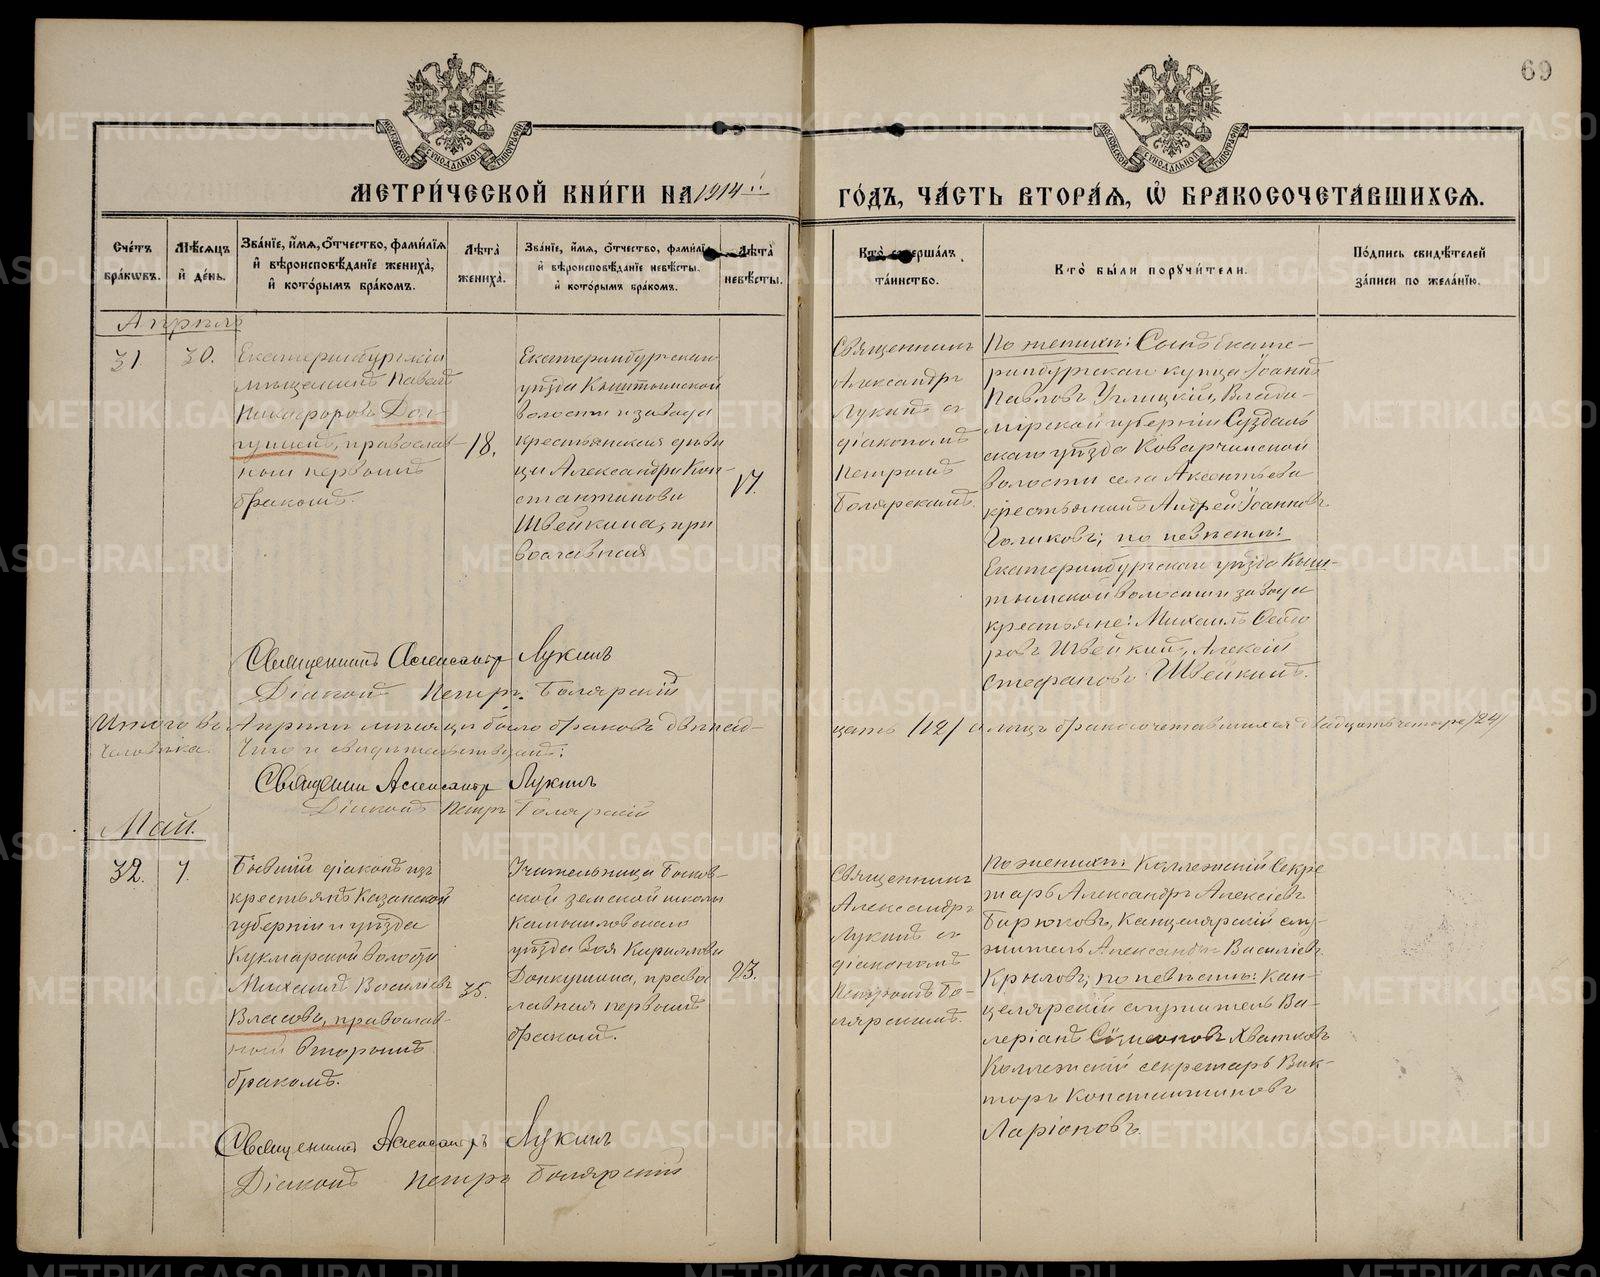 69
МОСКОВСКОЙ СѴНОДАЛЬНОЙ ТИПОГРАФІИ
МОСКОВСКОЙ СѴНОДАЛЬНОЙ ТИПОГРАФІИ
МЕТРИ́ЧЕСКОЙ КНИ́ГИ НА 1914 й
ГО́ДЪ, ЧА́СТЬ ВТОРА́Я, Ѡ БРАКОСОЧЕТА́ВШИХСЯ.
Сче́тъ бра́кѡвъ.
Мѣ́сяцъ и҆ де́нь.
Зва́нїе, и҆́мя, ѻ҆́тчество, фами́лїя
и҆ вѣроисповѣ́данїе жениха̀,
и҆ кото́рымъ бра́комъ.
Лѣта̀ жениха̀.
Зва́нїе, и҆́мя, ѻ҆́тчество, фами́лїя
и҆ вѣроисповѣ́данїе невѣ́сты.
и҆ кото́рымъ бра́комъ.
Лѣта̀ невѣ́сты.
Кто̀ соверша́лъ та́инство.
Кто̀ бы́ли поручи́тели.
По́дпись свидѣ́телей
за́писи по жела́нїю.
Апрѣль
31.
30.
Екатеринбургскій
мѣщанинъ Павелъ
Никифоровъ Дол-
гушинъ, православ-
ной первымъ
бракомъ.
18.
Екатеринбургскаго
уѣзда Кыштымской
волости и завода
крестьянская дѣви
ца Александра Кон-
стантинова
Швейкина, пра
вославная
17.
Священникъ
Александръ
Лукинъ съ
діакономъ
Петромъ
Болярскимъ.
По женихѣ: Сынъ Екате-
ринбургскаго купца Іоаннъ
Павловъ Углицкій, Влади-
мірской губерніи Суздаль
скаго уѣзда Коварчинской
волости села
крестьянинъ Андрей Іоанновъ
Голиковъ; по невѣстѣ:
Екатеринбургскаго уѣзда Кыш-
тымской волости и завода
крестьяне: Михаилъ Ѳедо
ровъ Швейкинъ, Алексій
Стефановъ Швейкинъ.
Священникъ Александръ Лукинъ
Діаконъ Петръ Болярскій
Итого въ Апрѣлѣ мѣсяцѣ было браковъ двѣнад-
цать /12/ а лицъ бракосочетавшихся двадцать четыре /24/
человѣка. Что и свидѣтельствуютъ:
Священникъ Александръ Лукинъ
Діаконъ Петръ Болярскій
Май.
32.
1.
Бывшій діаконъ изъ
крестьянъ Казанской
губерніи и уѣзда
Кукмарской волости
Михаилъ Васильевъ
Власовъ, православ-
ной вторымъ
бракомъ.
35.
Учительница
ской земской школы
Камышловскаго
уѣзда Зоя Кириллова
Донкушина, право
лавная первымъ
бракомъ.
23.
Священникъ
Александръ
Лукинъ съ
діакономъ
Петромъ Бо-
лярскимъ.
По женихѣ: Коллежскій Секре
тарь Александръ Алексіевъ
Бирюковъ, Канцелярскій слу-
житель Александръ Васильевъ
Крыловъ; по невѣстѣ: Кан-
целярскій служитель Ва-
леріанъ Сѵмеоновъ Хватковъ
Коллежскій секретарь Вик-
торъ Константиновъ
Ларіоновъ.
Священникъ Александръ Лукинъ
Діаконъ Петръ Болярскій
METRIKI.GASO-URAL.RU